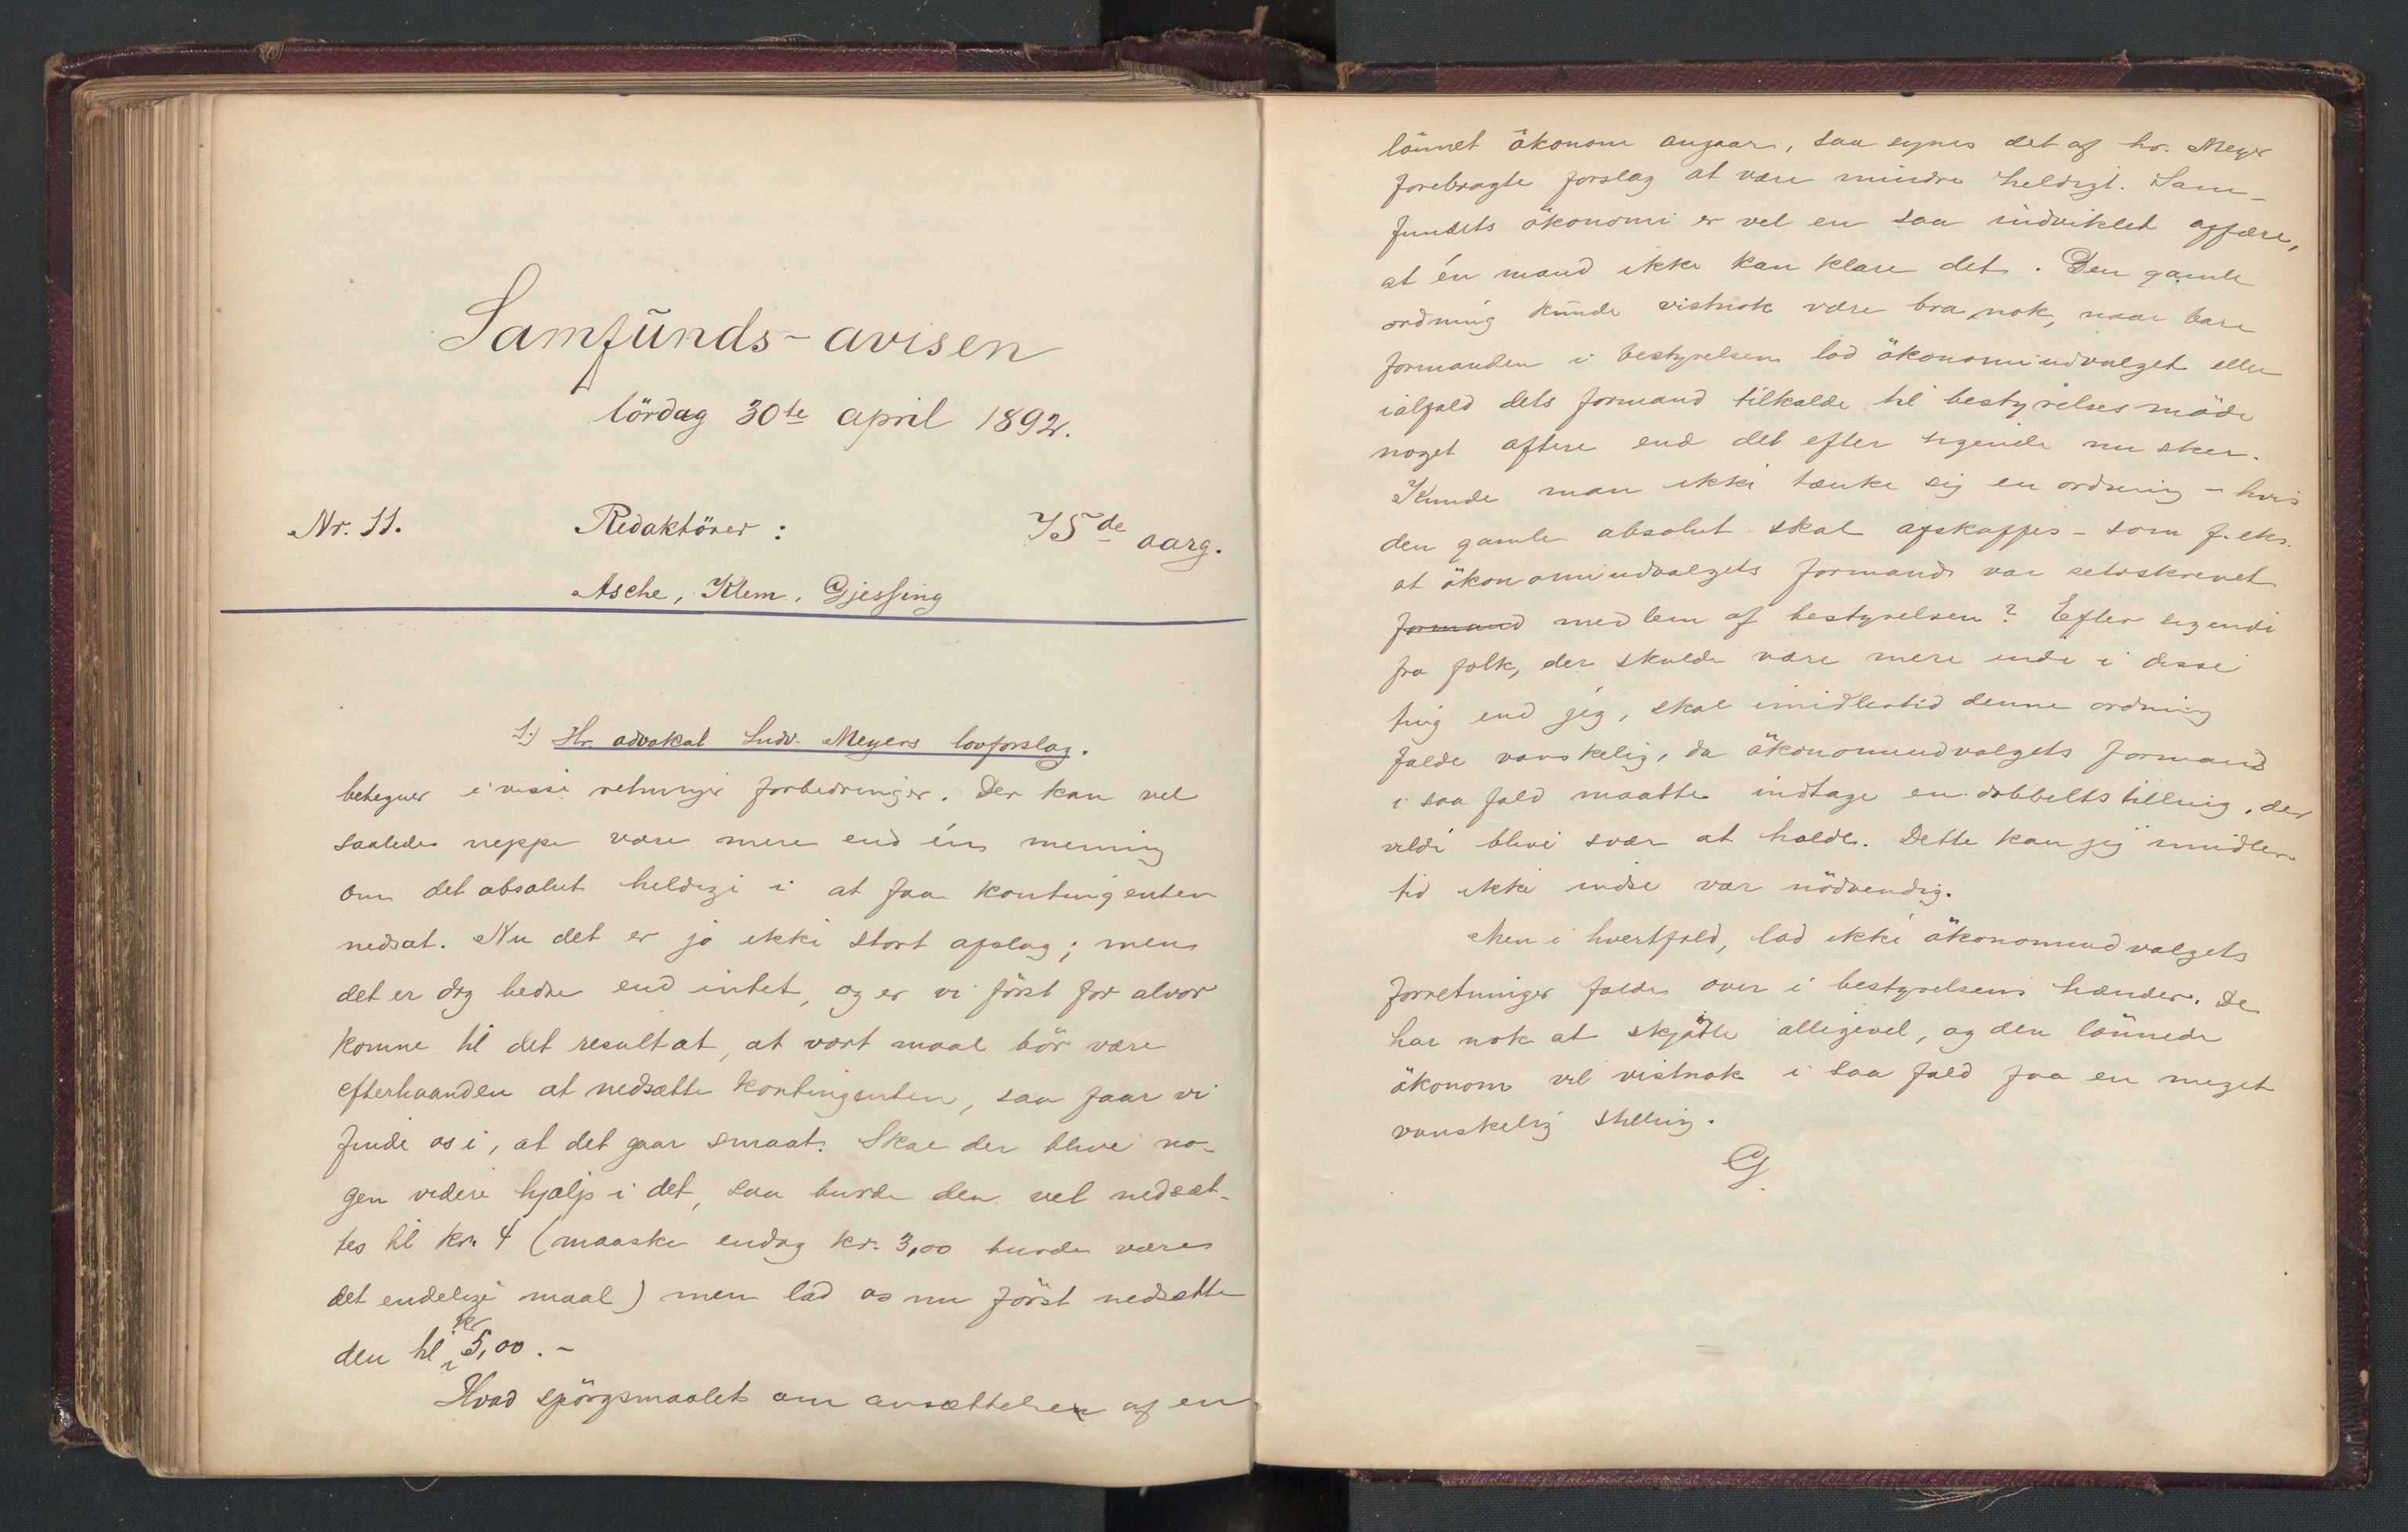 Samfünds-avisen
lördag 30te april 1892.
Nr. 11. Redaktörer: 75de aarg.
Asche, Klem, Gjessing
1.) Hr. advokat Ludv. Meyers lovforslag.
betegner i visse retninger forbedringer. Der kan vel
saaledes neppe være mere end én mening
om det absolut heldige i at faa kontingenten
nedsat. Nu det er jo ikke stort afslag; men
det er dog bedre end intet, og er vi först for alvor
komne til det resultat, at vort maal bör være
efterhaanden at nedsætte kontingenten, saa faar vi
finde os i, at det gaar smaat. Skal der blive no-
gen videre hjælp i det, saa burde den vel nedsæt-
tes til kr. 4 (maaske endog kr. 3,00 burde være
det endelige maal) men lad os nu först nedsætte
den til kr 5,00. –
Hvad spörgsmaalet om ansættelsen af en
lönnet ökonom angaar, saa synes det af hr. Meyer
forebragte forslag at være mindre heldigt. Sam-
fundets ökonomi er vel en saa indviklet affære,
at én mand ikke kan klare det. Den gamle
ordning künde vistnok være bra nok, naar bare
formanden i bestyrelsen lod ökonomiudvalget eller
ialfald dets formand tilkalde til bestyrelsesmöde
noget oftere end det efter sigende nu sker.
Kunde man ikke tænke sig en ordning – hvis
den gamle absolut skal afskaffes – som f. eks.
at ökonomiudvalgets formand var selvskrevet
formand medlem af bestyrelsen? Efter sigende
fra folk, der skulde være mere inde i disse
ting end jeg, skal imidlertid denne ordning
falde vanskelig, da ökonomiudvalgets formand
i saa fald maatte indtage en dobbeltstilling, der
vilde blive svær at holde. Dette kan jeg imidler-
tid ikke indse var nödvendig.
Men i hvertfald, lad ikke ökonomiudvalgets
forretninger falde over i bestyrelsens hænder. De
har nok at skjötte alligevel, og den lönnede
ökonom vil vistnok i saa fald faa en meget
vanskelig stilling.
G.